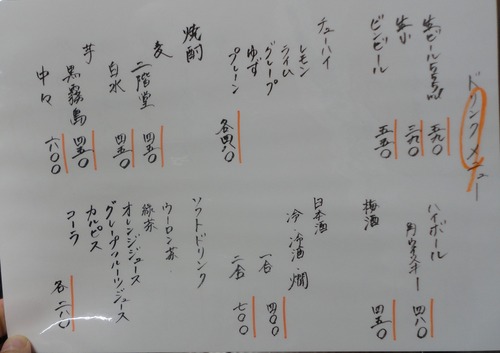 ドリンクメニュー
生ビール555ml 五九〇
生小 三九〇
ビンビール 五五〇
チューハイ
レモン
ライム
グレープ
ゆず
プレーン 各四八〇
焼酎
麦
二階堂 四五〇
白水 四五〇
芋
黒霧島 四五〇
中々 六〇〇
ハイボール
角ウイスキー 四八〇
梅酒 四五〇
日本酒
冷・冷酒・燗
一合 四〇〇
二合 七〇〇
ソフトドリンク
ウーロン茶
緑茶
オレンジジュース
グレープフルーツジュース
カルピス
コーラ 各二八〇